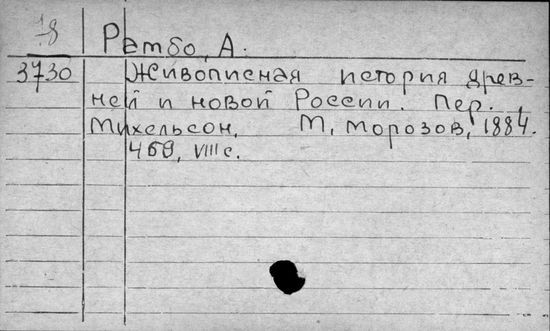 18
Рамбо, А.
3730 Живописная история древ-
ней и новой России. Пер.,
Михельсон, М, Морозов, 1884.
469, VIII с.